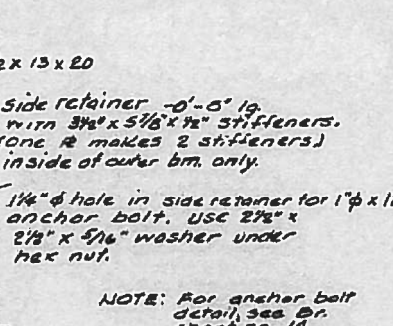 2 x 13 x 20
side retainer -0'-8" lg.
with 3½" x 5⅞" x ½" stiffeners.
(one ℄ makes 2 stiffeners)
inside of outer bm. only.
1¼" φ hole in side retainer for 1"φ x 1
anchor bolt. Use 2½" x
2½" x 5/16" washer under
hex nut.
NOTE: For anchor bolt
detail, see Br.